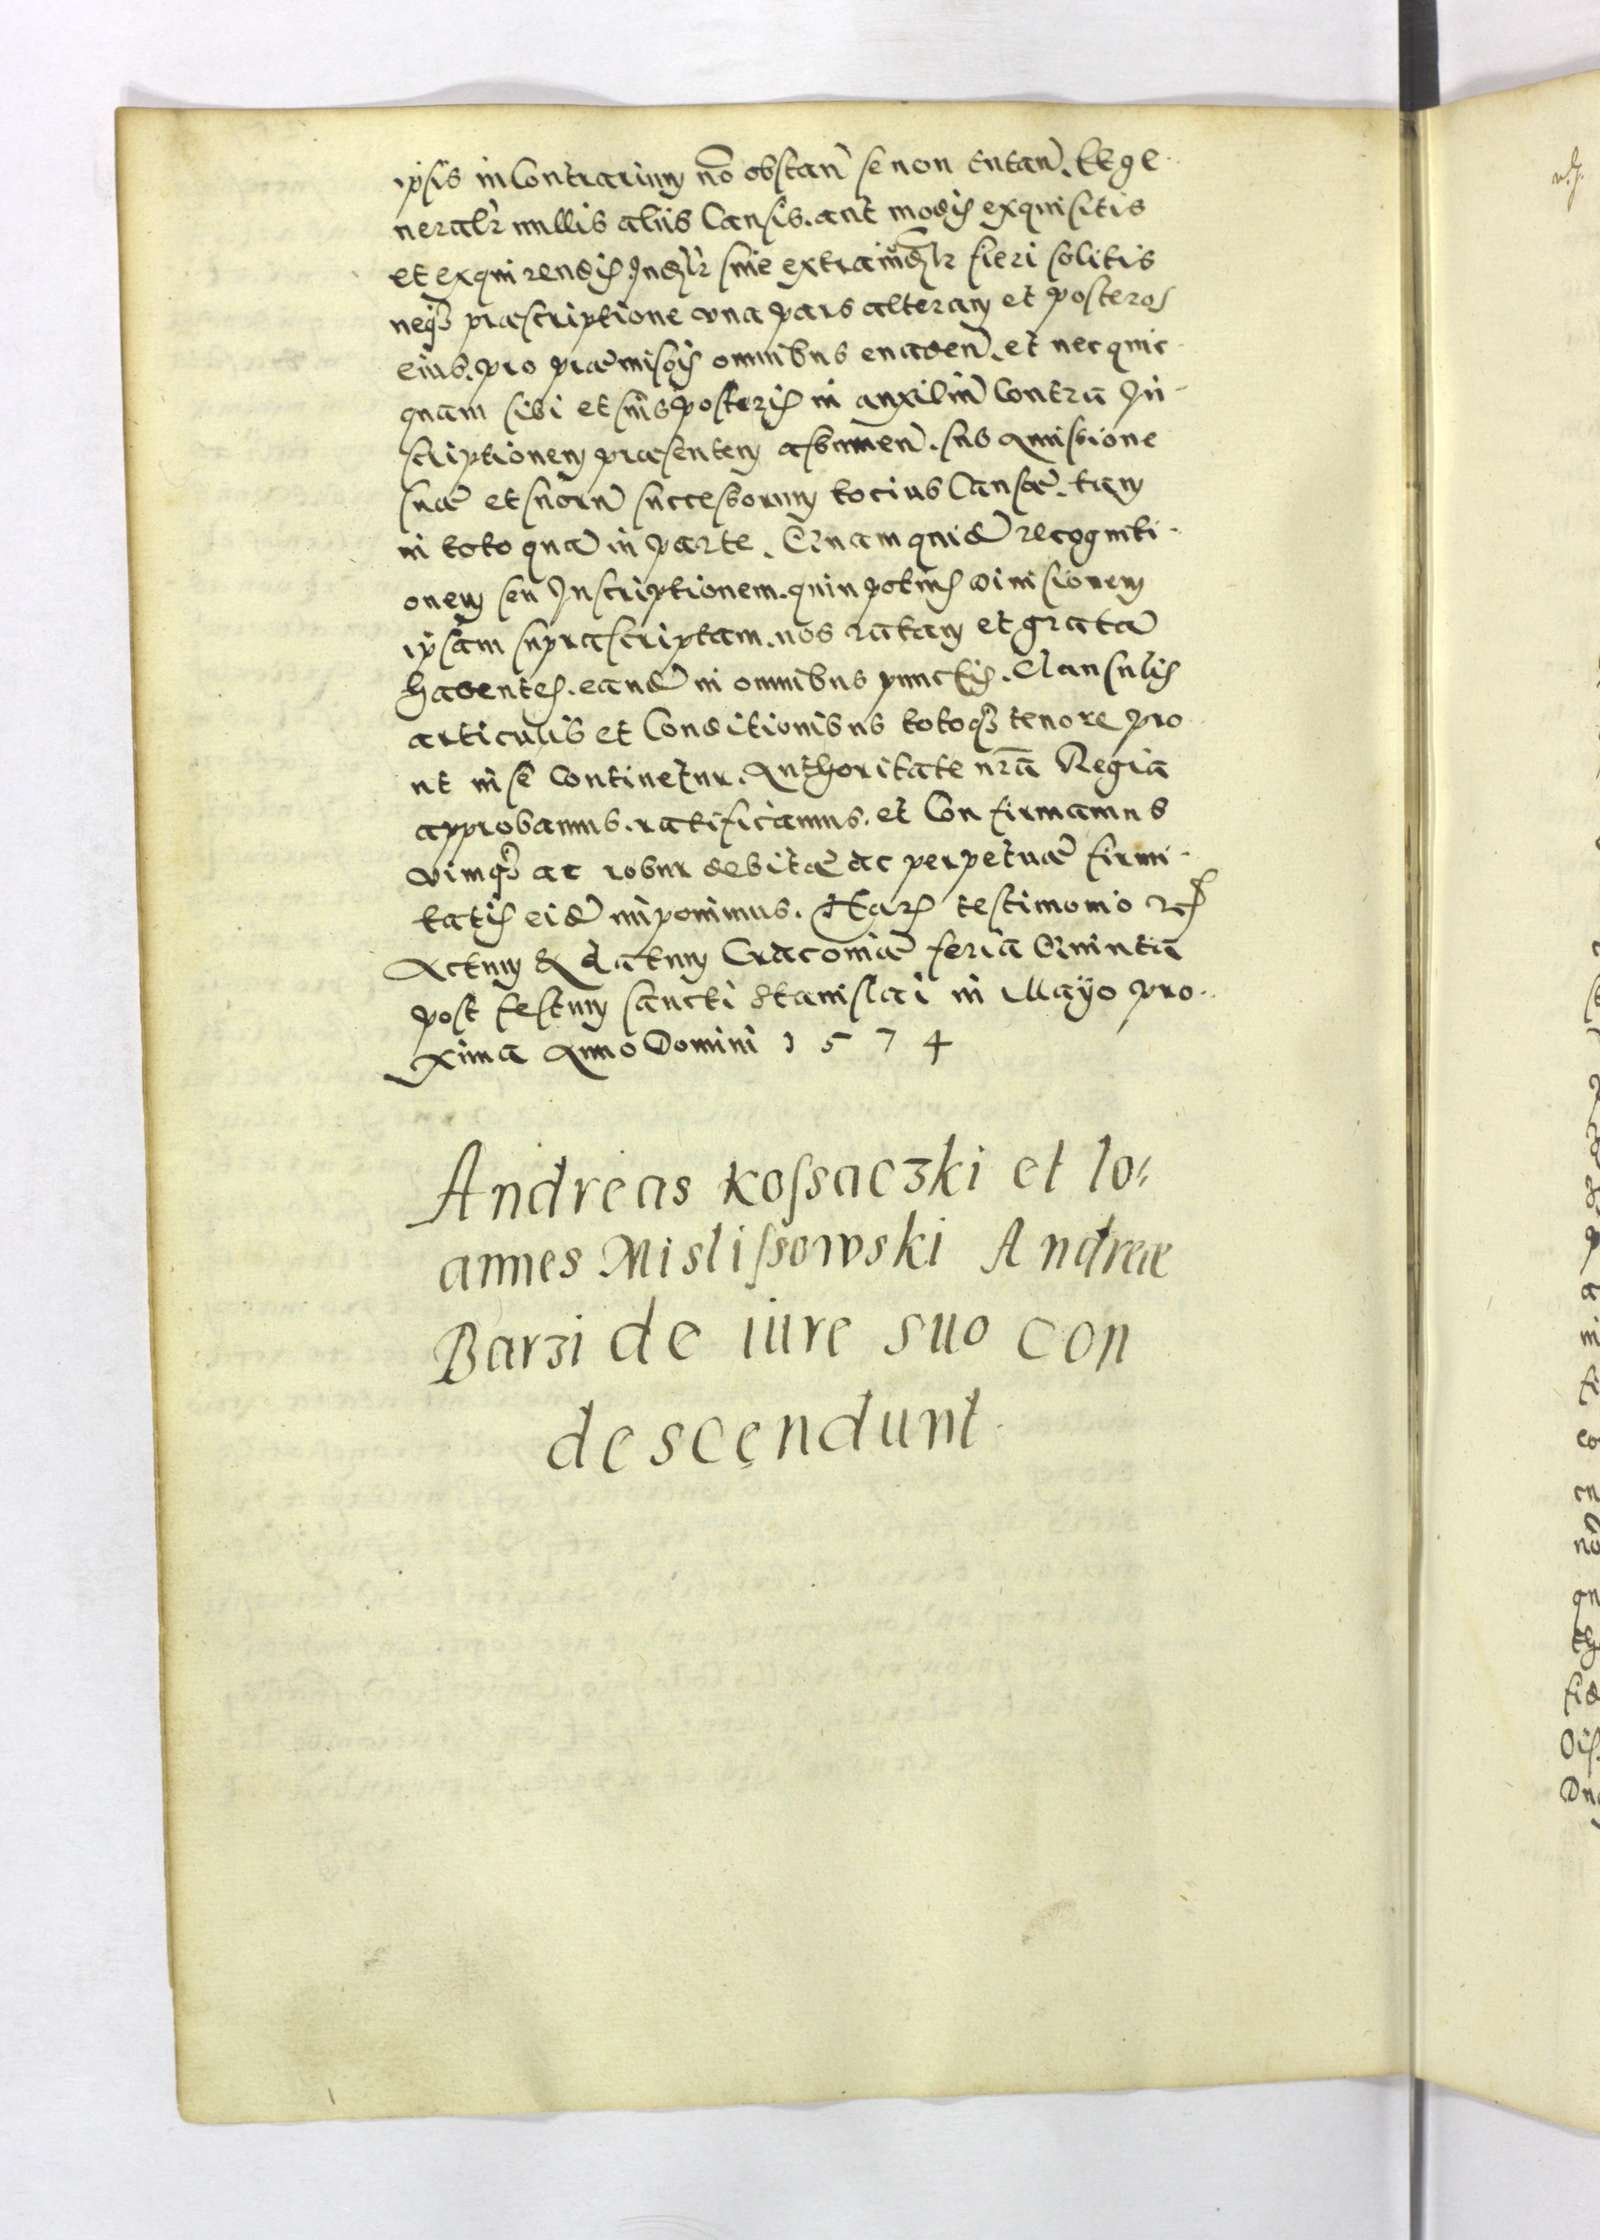 ipsis in Contrarium nō obstan̄ se non tutan̄. Et ge-
neralr̄ nullis aliis Causis. aut modis exquisitis
et exquirendis Iudlr̄ siue extraiudlr̄ fieri solitis
neqȝ præscriptione vna pars alteram et posteros
eius. pro præmissis omnibus euaden̄. et nec quic-
quam sibi et suis posteris in auxiliū Contra In-
scriptionem præsentem assumen̄. sub amissione
suæ et suorū successorum tocius Causæ. tam
in toto quā in parte. Quam quidē recogniti-
onem seu Inscriptionem. quin potius diuisionem
ipsam suprascriptam. nos ratam et gratā
habentes. eandē in omnibus punctis. Clausulis
articulis et Conditionibus totoqȝ tenore pro
ut in se continetur. Authoritate nr̄a Regia
approbamus. ratificamus. et Confirmamus
vimqȝ ac robur debitæ ac perpetuæ firmi-
tatis eidē imponimus. Harȝ testimonio rc̄
Actum & datum Cracouiæ feria Quinta
post festum sancti Stanislai in Mayo pro-
xima Anno Domini 1574
Andreas Kossaczki et Io-
annes Mislissowski Andreæ
Barzi de iure suo con
descendunt.